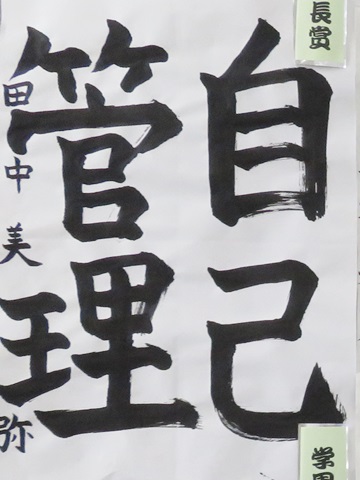 長賞
自己
管理
田中美弥
学